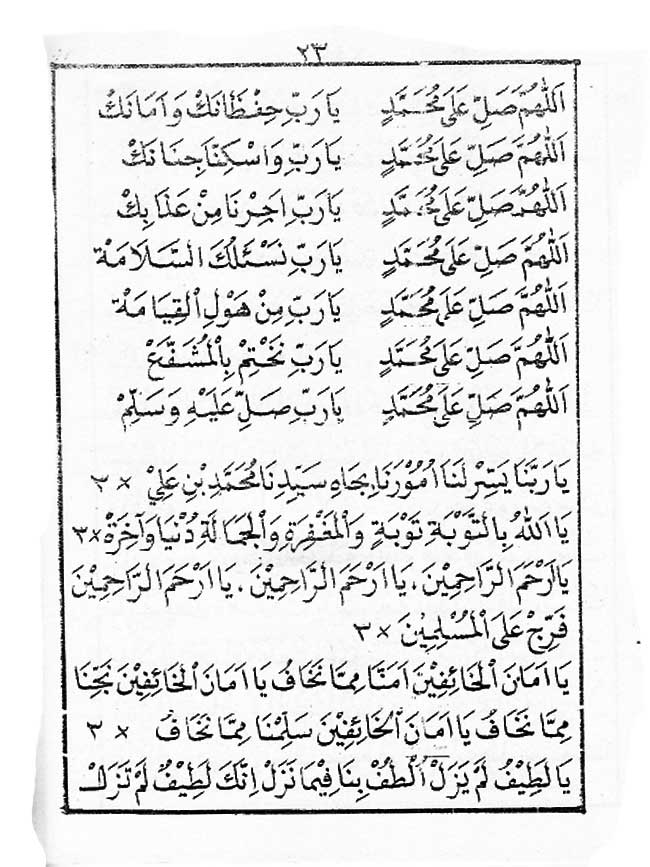 ٢٣
اَللّٰهُمَّ صَلِّ عَلَى مُحَمَّدٍ يَارَبِّ حِفْظَانَكْ وَاَمَانَكْ
اَللّٰهُمَّ صَلِّ عَلَى مُحَمَّدٍ يَارَبِّ وَاسْكِنَّا جِنَانَكْ
اَللّٰهُمَّ صَلِّ عَلَى مُحَمَّدٍ يَارَبِّ اَجِرْنَا مِنْ عَذَابِكْ
اَللّٰهُمَّ صَلِّ عَلَى مُحَمَّدٍ يَارَبِّ نَسْئَلُكَ السَّلَامَةْ
اَللّٰهُمَّ صَلِّ عَلَى مُحَمَّدٍ يَارَبِّ مِنْ هَوْلِ الْقِيَامَةْ
اَللّٰهُمَّ صَلِّ عَلَى مُحَمَّدٍ يَارَبِّ نَخْتِمْ بِالْمُشَفَّعْ
اَللّٰهُمَّ صَلِّ عَلَى مُحَمَّدٍ يَارَبِّ صَلِّ عَلَيْهِ وَسَلِّمْ
يَارَبَّنَا يَسِّرْ لَنَا اُمُوْرَنَا بِجَاهِ سَيِّدِنَا مُحَمَّدِ بْنِ عَلِيْ × ٣
يَا اَللّٰهُ بِالتَّوْبَةِ تَوْبَةٍ وَالْمَغْفِرَةِ وَالْجَمَالَةِ دُنْيَا وَآخِرَةْ × ٣
يَا اَرْحَمَ الرَّاحِمِيْنَ، يَا اَرْحَمَ الرَّاحِمِيْنَ، يَا اَرْحَمَ الرَّاحِمِيْنَ
فَرِّجْ عَلَى الْمُسْلِمِيْنَ × ٣
يَا اَمَانَ الْخَائِفِيْنَ اَمِنَّا مِمَّا نَخَافُ يَا اَمَانَ الْخَائِفِيْنَ نَجِّنَا
مِمَّا نَخَافُ يَا اَمَانَ الْخَائِفِيْنَ سَلِّمْنَا مِمَّا نَخَافُ × ٣
يَا لَطِيْفُ لَمْ يَزَلْ اُلْطُفْ بِنَا فِيْمَا نَزَلْ اِنَّكَ لَطِيْفٌ لَمْ تَزَلْ